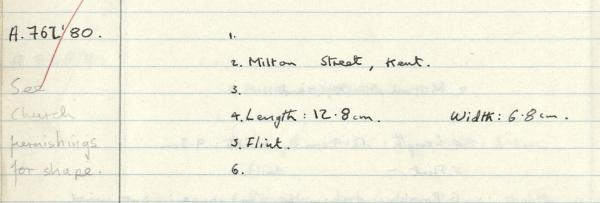 A.762'80. 1.
2. Milton Street, Kent.
See 3.
Church 4. Length: 12.8cm. Width: 6.8cm.
furnishings 5. Flint.
for shape. 6.